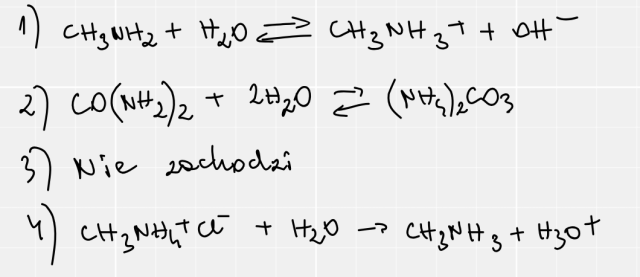 1) CH₃NH₂ + H₂O ⇌ CH₃NH₃⁺ + OH⁻
2) CO(NH₂)₂ + 2H₂O ⇌ (NH₄)₂CO₃
3) Nie zachodzi
4) CH₃NH₄⁺Cl⁻ + H₂O → CH₃NH₃ + H₃O⁺